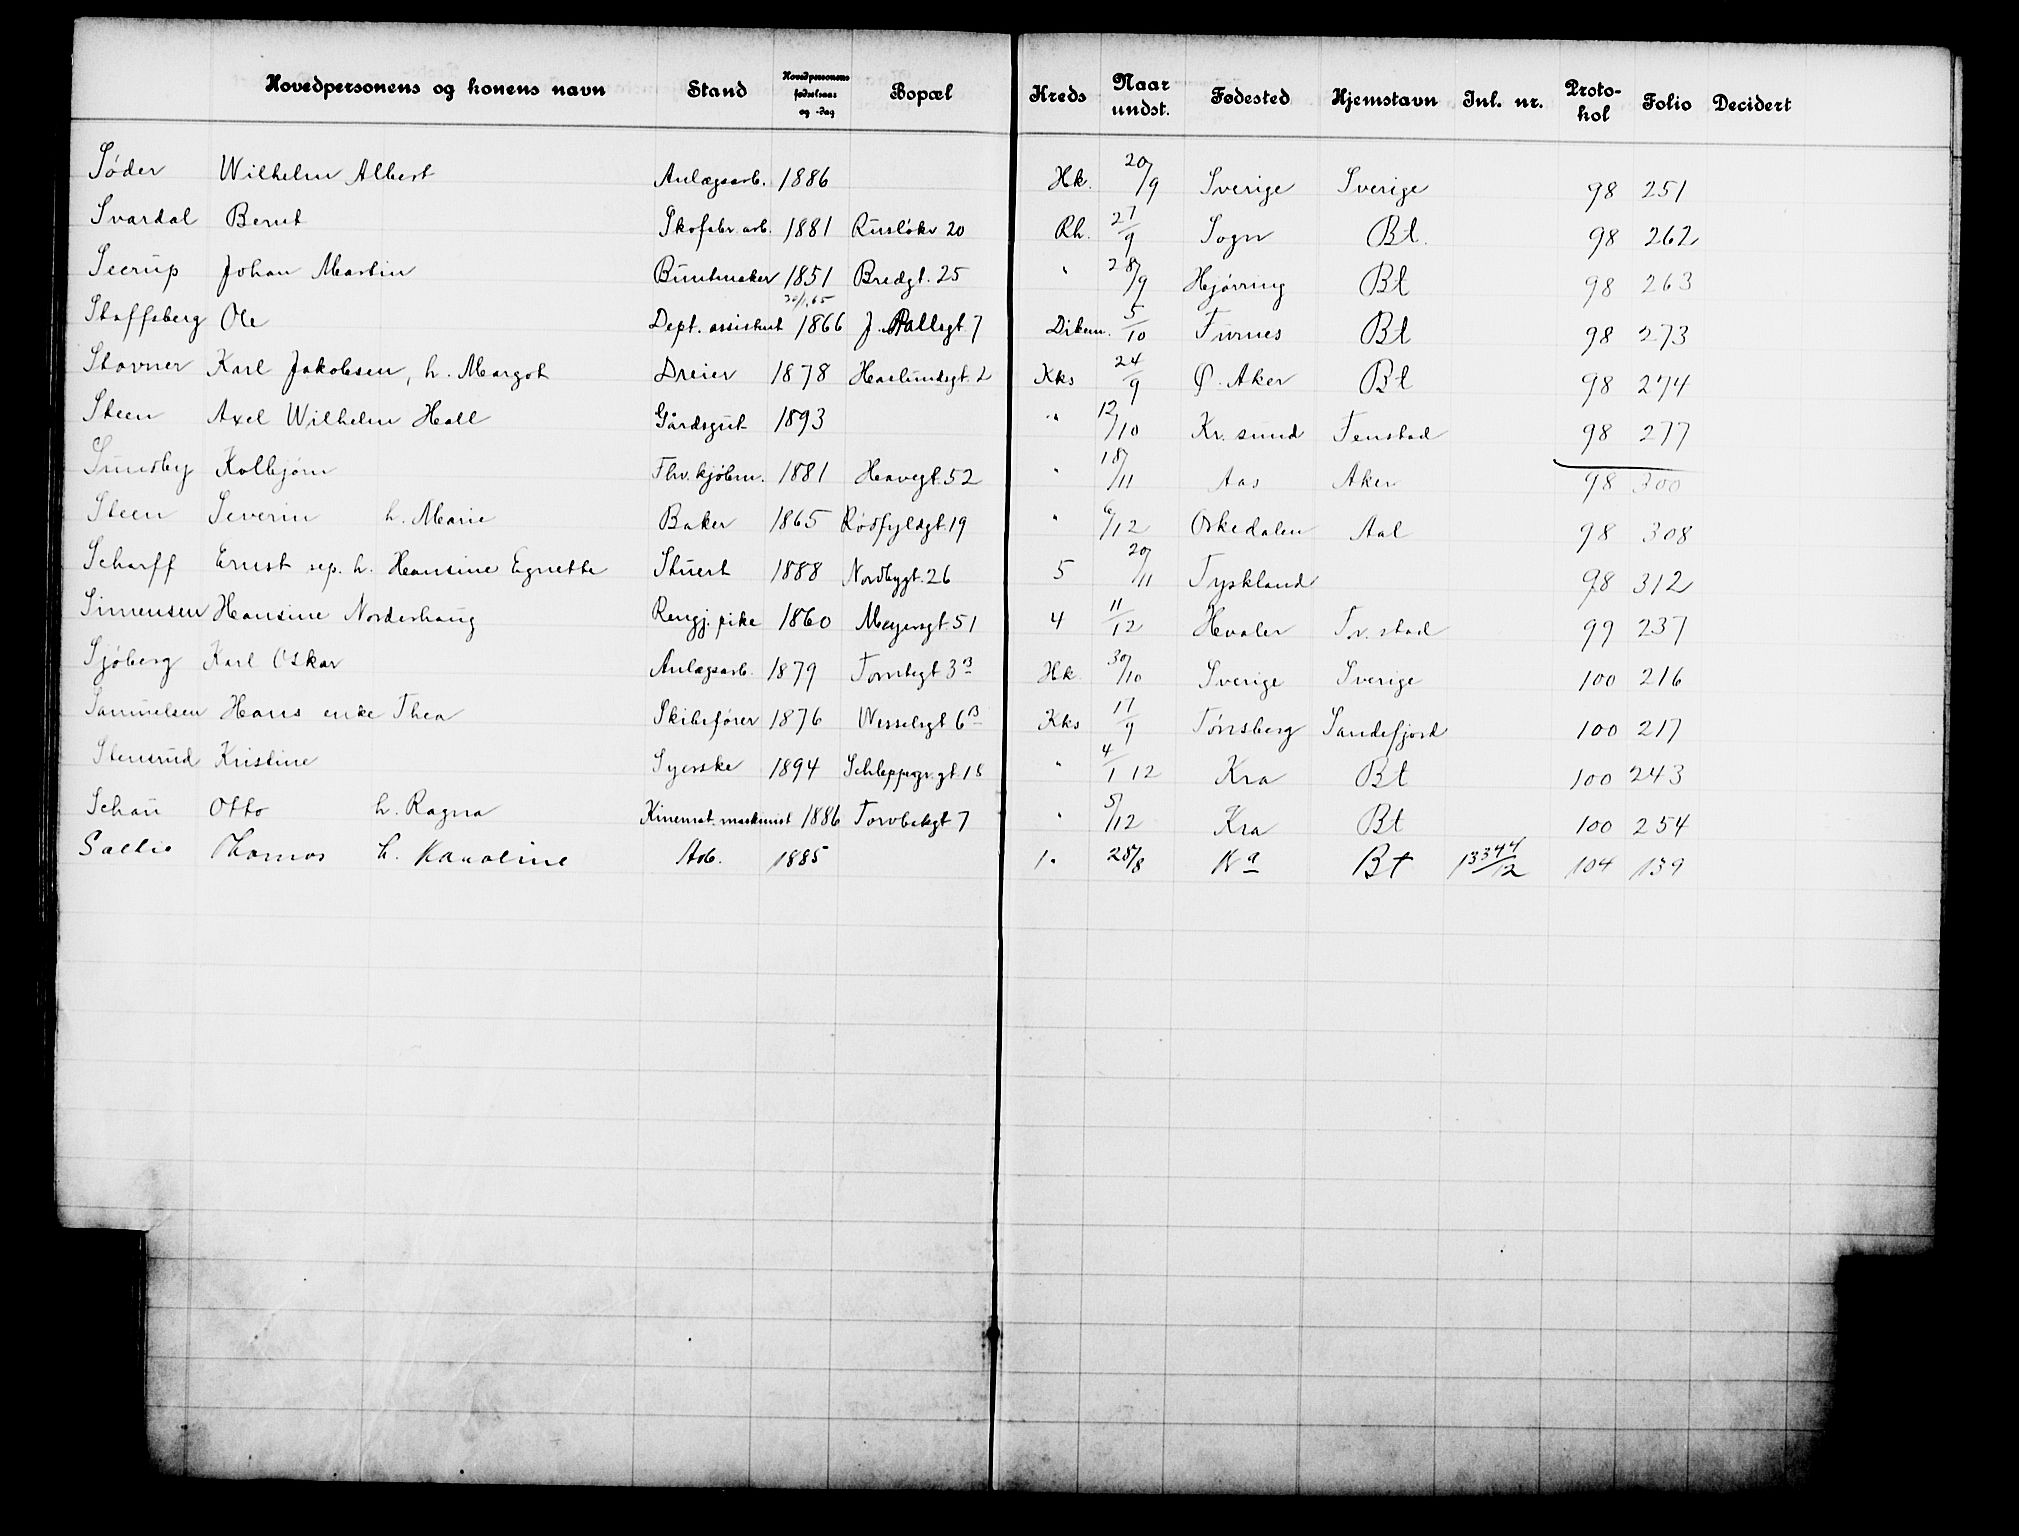 Hovedpersonens og konens navn Stand Hovedpersonens fødselsaar og -dag Bopæl Kreds Naar undst. Fødested Hjemstavn Inl. nr. Proto-kol Folio Decidert
Söder Wilhelm Albert Anlægsarb. 1886 Hk. 20/9 Sverige Sverige 98 251
Svardal Bernt Skofabr. arb. 1881 Rusløkv 20 Rh. 27/9 Sogn Bt. 98 262
Seerup Johan Martin Buntmaker 1851 Bredgt. 25 " 28/9 Hjørring Bt 98 263
Staffsberg Ole Dept. assistent 1866 J. Pallsgt. 7 Dikem. 5/10 Furnes Bt 98 273
Stovner Karl Jakobsen, h. Margot Dreier 1878 Haslundsgt. 2 Kks 24/9 Ø. Aker Bt 98 274
Steen Axel Wilhelm Hall Gårdsgut 1893 " 12/10 Kr. sund Fenstad 98 277
Sundby Kolbjørn Fhv. kjøbm. 1881 Hervegt. 52 " 18/11 Aas Aker 98 300
Steen Severin h. Marie Baker 1865 Rødfyldgt. 19 " 6/12 Orkedalen Aal 98 308
Scharff Ernst sep. h. Hansine Egnette Stuert 1888 Nordbygt. 26 5 20/11 Tyskland 98 312
Simensen Hansine Norderhaug Rengj. pike 1860 Meyersgt. 51 4 11/12 Hvaler Fr. stad 99 237
Sjöberg Karl Oskar Anlægsarb. 1879 Tomtegt 3B Hk. 30/10 Sverige Sverige 100 216
Samuelsen Hans enke Thea Skibsfører 1876 Wesselsgt 6B Kks 17/9 Tønsberg Sandefjord 100 217
Stensrud Kristine Syerske 1894 Schleppegr. gt. 15 " 4/112 Kra Bt 100 243
Schau Otto h. Ragna Kinemat. maskinist 1886 Torvbakgt 7 " 5/12 Kra Bt 100 254
Sallie Thomas h. Karoline Arb. 1885 1. 28/8 Kra Bt 13344/12 104 139